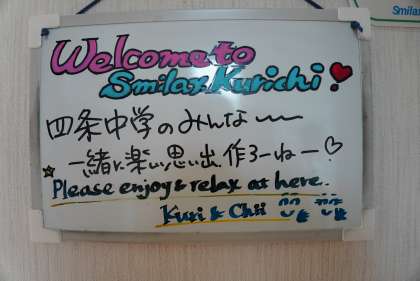 Smilax
Welcome to
Smilax Kurichi!
四条中学のみんな〜
一緒に楽しい思い出、作ろーねー♡
☆Please enjoy & relax at here..
Kuri & Chii